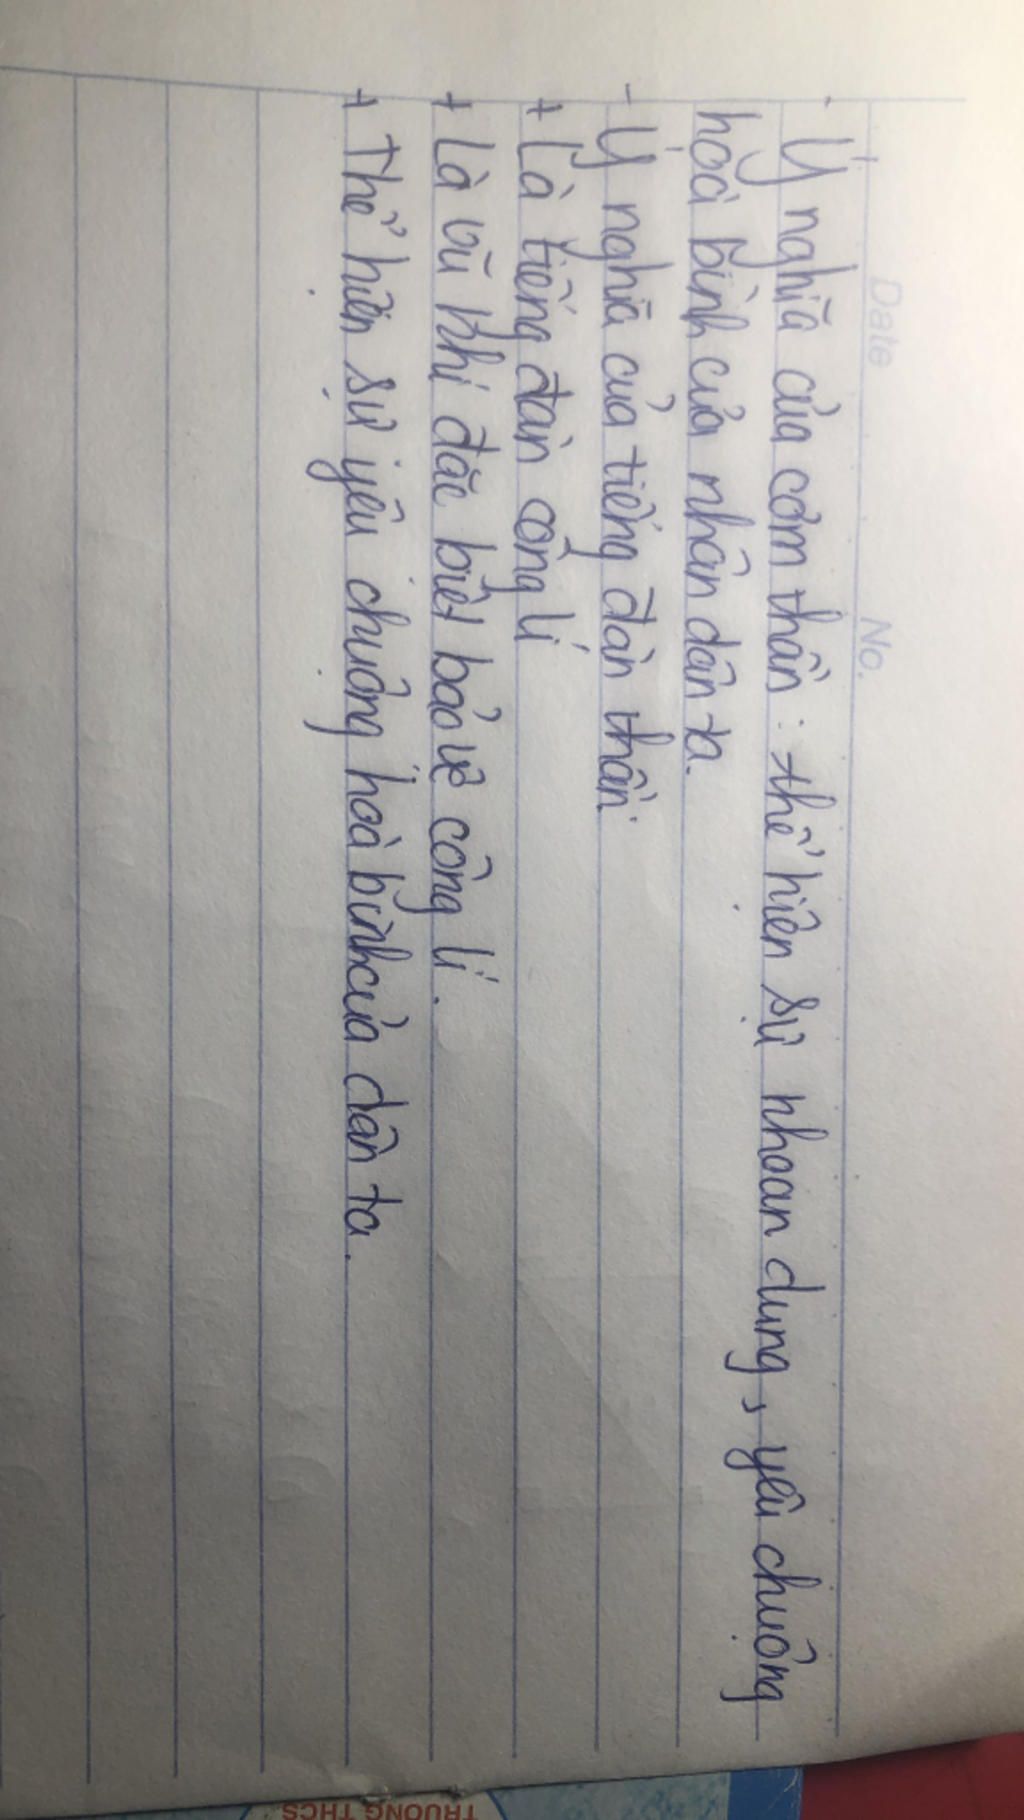 Date No.
- Ý nghĩa của cơm thần: thể hiện sự nhoan dung, yêu chuộng
hoà bình của nhân dân ta.
- Ý nghĩa của tiếng đàn thần:
+ Là tiếng đàn công lí
+ Là vũ khí đặc biệt bảo vệ công lí.
+ Thể hiện sự yêu chuộng hoà bình của dân ta.
TRƯỜNG THCS